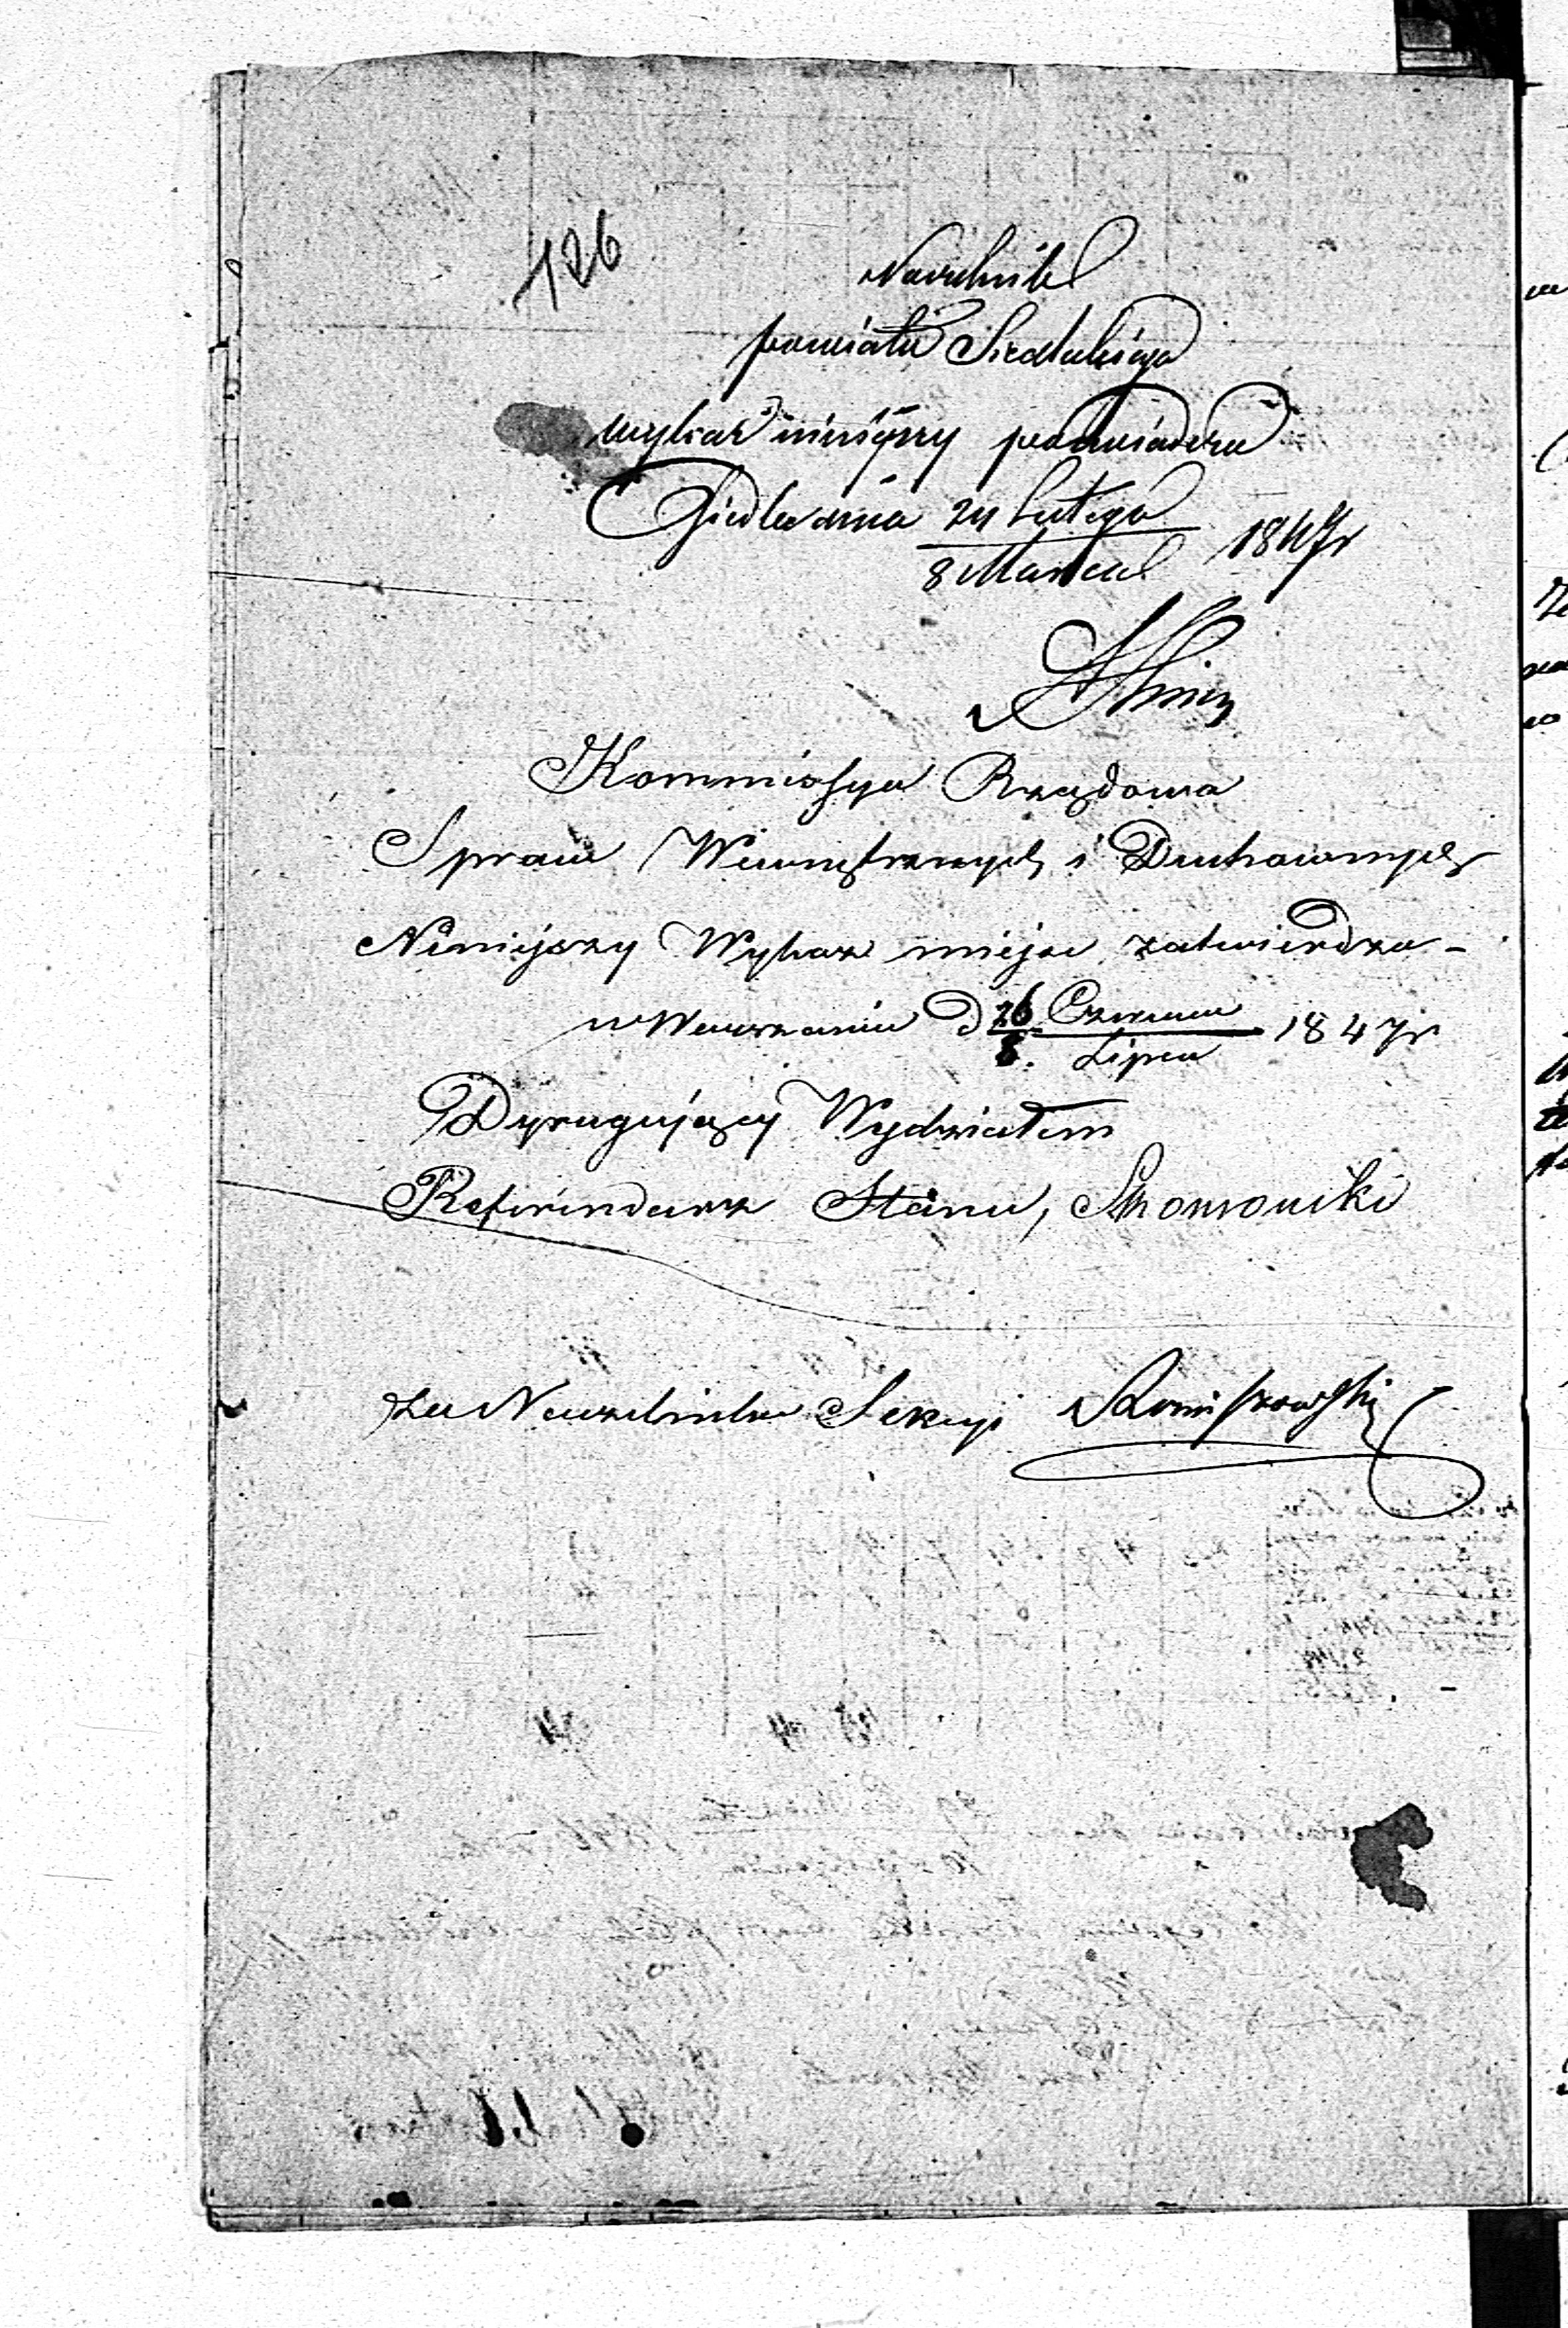 126
Naczelnik
powiatu Siedleckiego
wykaz niniejszy poświadcza
Siedlce dnia 24 Lutego
8 Marca 1847 r
Kommissya Rządowa
Spraw Wewnętrznych i Duchownych
Niniejszy Wykaz miejsc zatwierdza -
w Warszawie d 26 Czerwca
8. Lipca 1847 r
Dyrygujący Wydziałem
Referendarz Stanu,
za Naczelnika Sekcyi